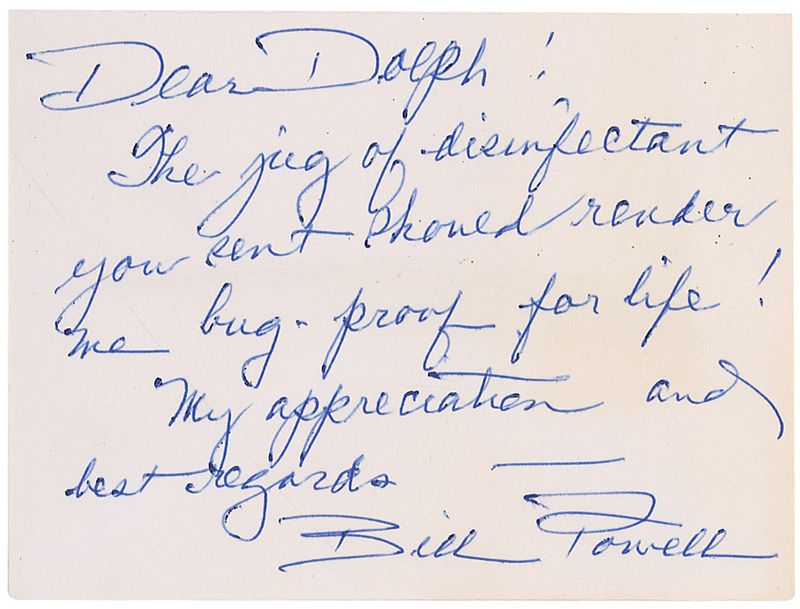 Dear Dolph!
The jug of disinfectant
you sent should render
me bug-proof for life!
My appreciation and
best regards —
Bill Powell